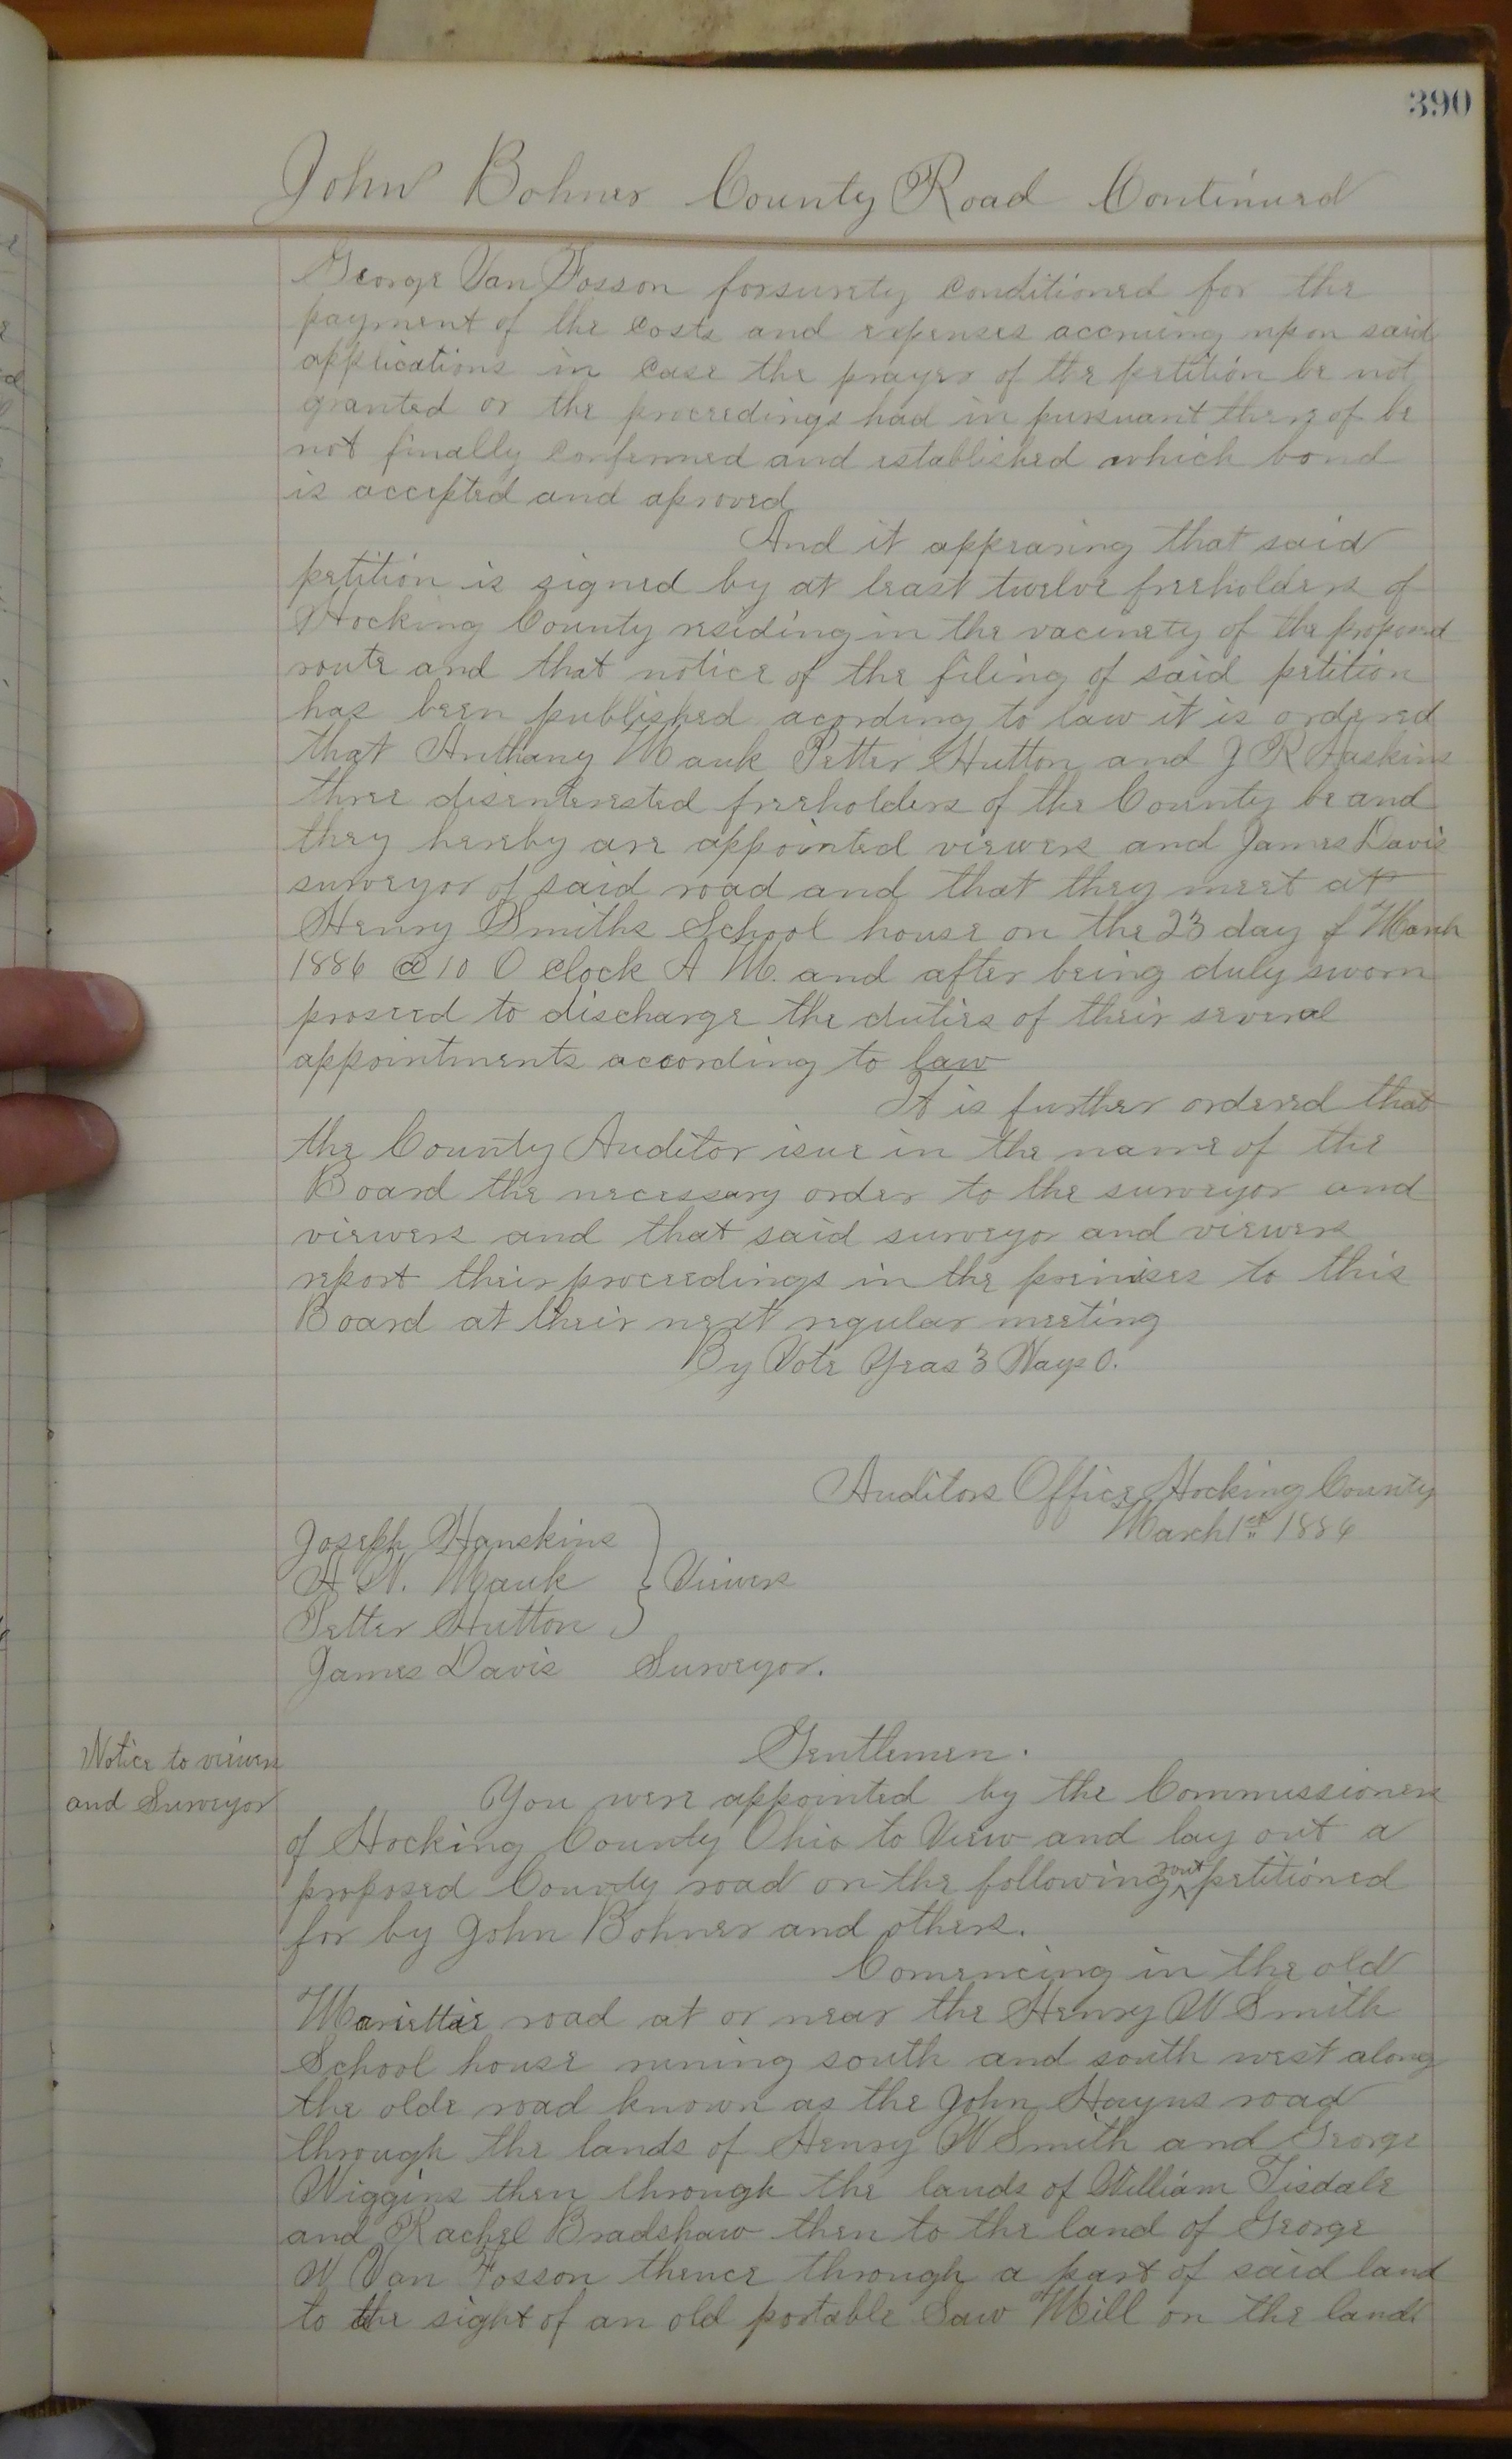 390
John Bohner County Road Continued
George Van Fosson forsurety conditioned for the
payment of the costs and expenses accruing upon said
applications in case the prayer of the petition be not
granted or the proceedings had in pursuant thereof be
not finally confermed and established which bond
is accepted and aproved
And it appearing that said
petition is signed by at least twelve freeholders of
Hocking County residing in the vacinety of the proposed
route and that notice of the filing of said petition
has been published acording to law it is ordered
that Anthany Mauk Petter Hutton and J R Haskins
three disenterested freeholders of the County be and
they hereby are appointed viewers and James Davis
surveyor of said road and that they meet at
Henry Smiths School house on the 23 day of March
1886 @ 10 O clock A M. and after being duly sworn
proseed to discharge the duties of their several
appointments according to law
It is further ordered that
the County Auditor isue in the name of the
Board the necessary order to the surveyor and
viewers and that said surveyor and viewers
report their proceedings in the premises to this
Board at their next regular meeting
By Vote Yeas 3 Nays 0.
Auditors Office Hocking County
March 1st 1886
Joseph Hanskins
A N. Mauk } Viewers
Petter Hutton
James Davis Surveyor.
Gentlemen.
Notice to viewers
and Surveyor
You were appointed by the Commissioners
of Hocking County Ohio to View and lay out a
proposed County road on the following rout petitioned
for by John Bohner and others.
Comencing in the old
Mariettie road at or near the Henry W Smith
School house runing south and south west along
the olde road known as the John Hayns road
through the lands of Henry W Smith and George
Wiggins then through the lands of William Tisdale
and Rachel Bradshaw then to the land of George
W Van Fosson thence through a part of said land
to the sight of an old portable Saw Mill on the lands